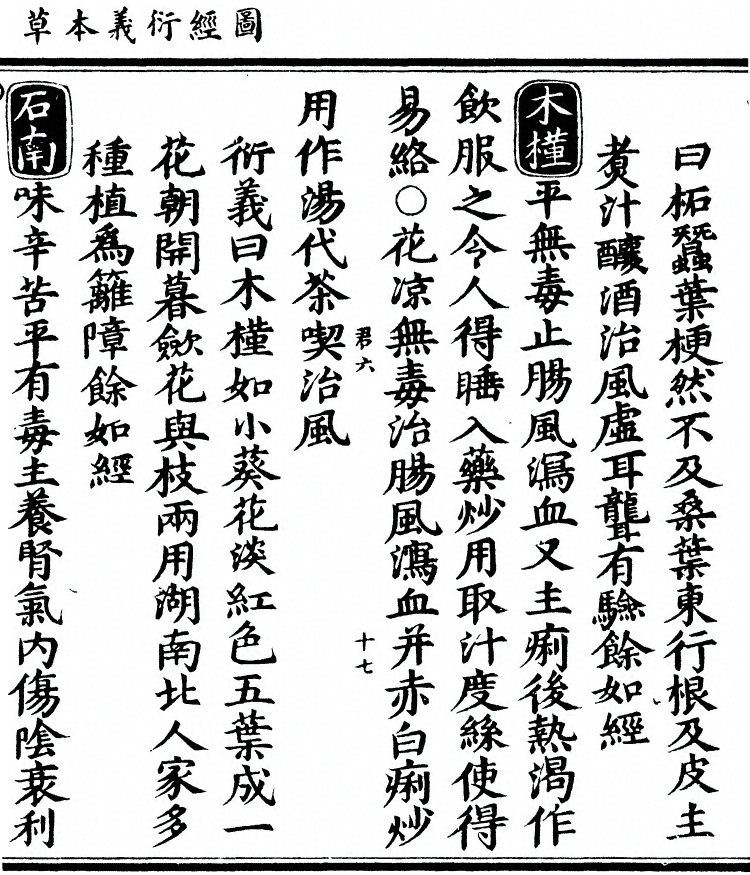 圖經衍義本草
曰柘蠶葉梗然不及桑葉東行根及皮主
煑汁釀酒治風虛耳聾有驗餘如經
木槿平無毒止腸風瀉血又主痢後熱渴作
飲服之令人得睡入藥炒用取汁度絲使得
易絡○花凉無毒治腸風瀉血并赤白痢炒
君六 十七
用作湯代茶喫治風
衍義曰木槿如小葵花淡紅色五葉成一
花朝開暮歛花與枝兩用湖南北人家多
種植爲籬障餘如經
石南味辛苦平有毒主養腎氣內傷陰衰利